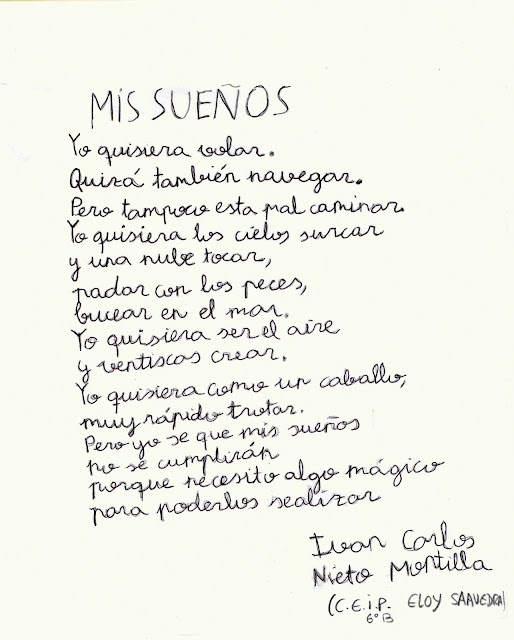 MIS SUEÑOS
Yo quisiera volar.
Quizá también navegar.
Pero tampoco esta mal caminar.
Yo quisiera los cielos surcar
y una nube tocar,
nadar con los peces,
bucear en el mar.
Yo quisiera ser el aire
y ventiscas crear.
Yo quisiera como un caballo,
muy rápido trotar.
Pero yo se que mis sueños
no se cumplirán
porque necesito algo mágico
para poderlos realizar
Ivan Carlos
Nieto Montilla
(C.E.i.P. ELOY SAAVEDRA)
6º B